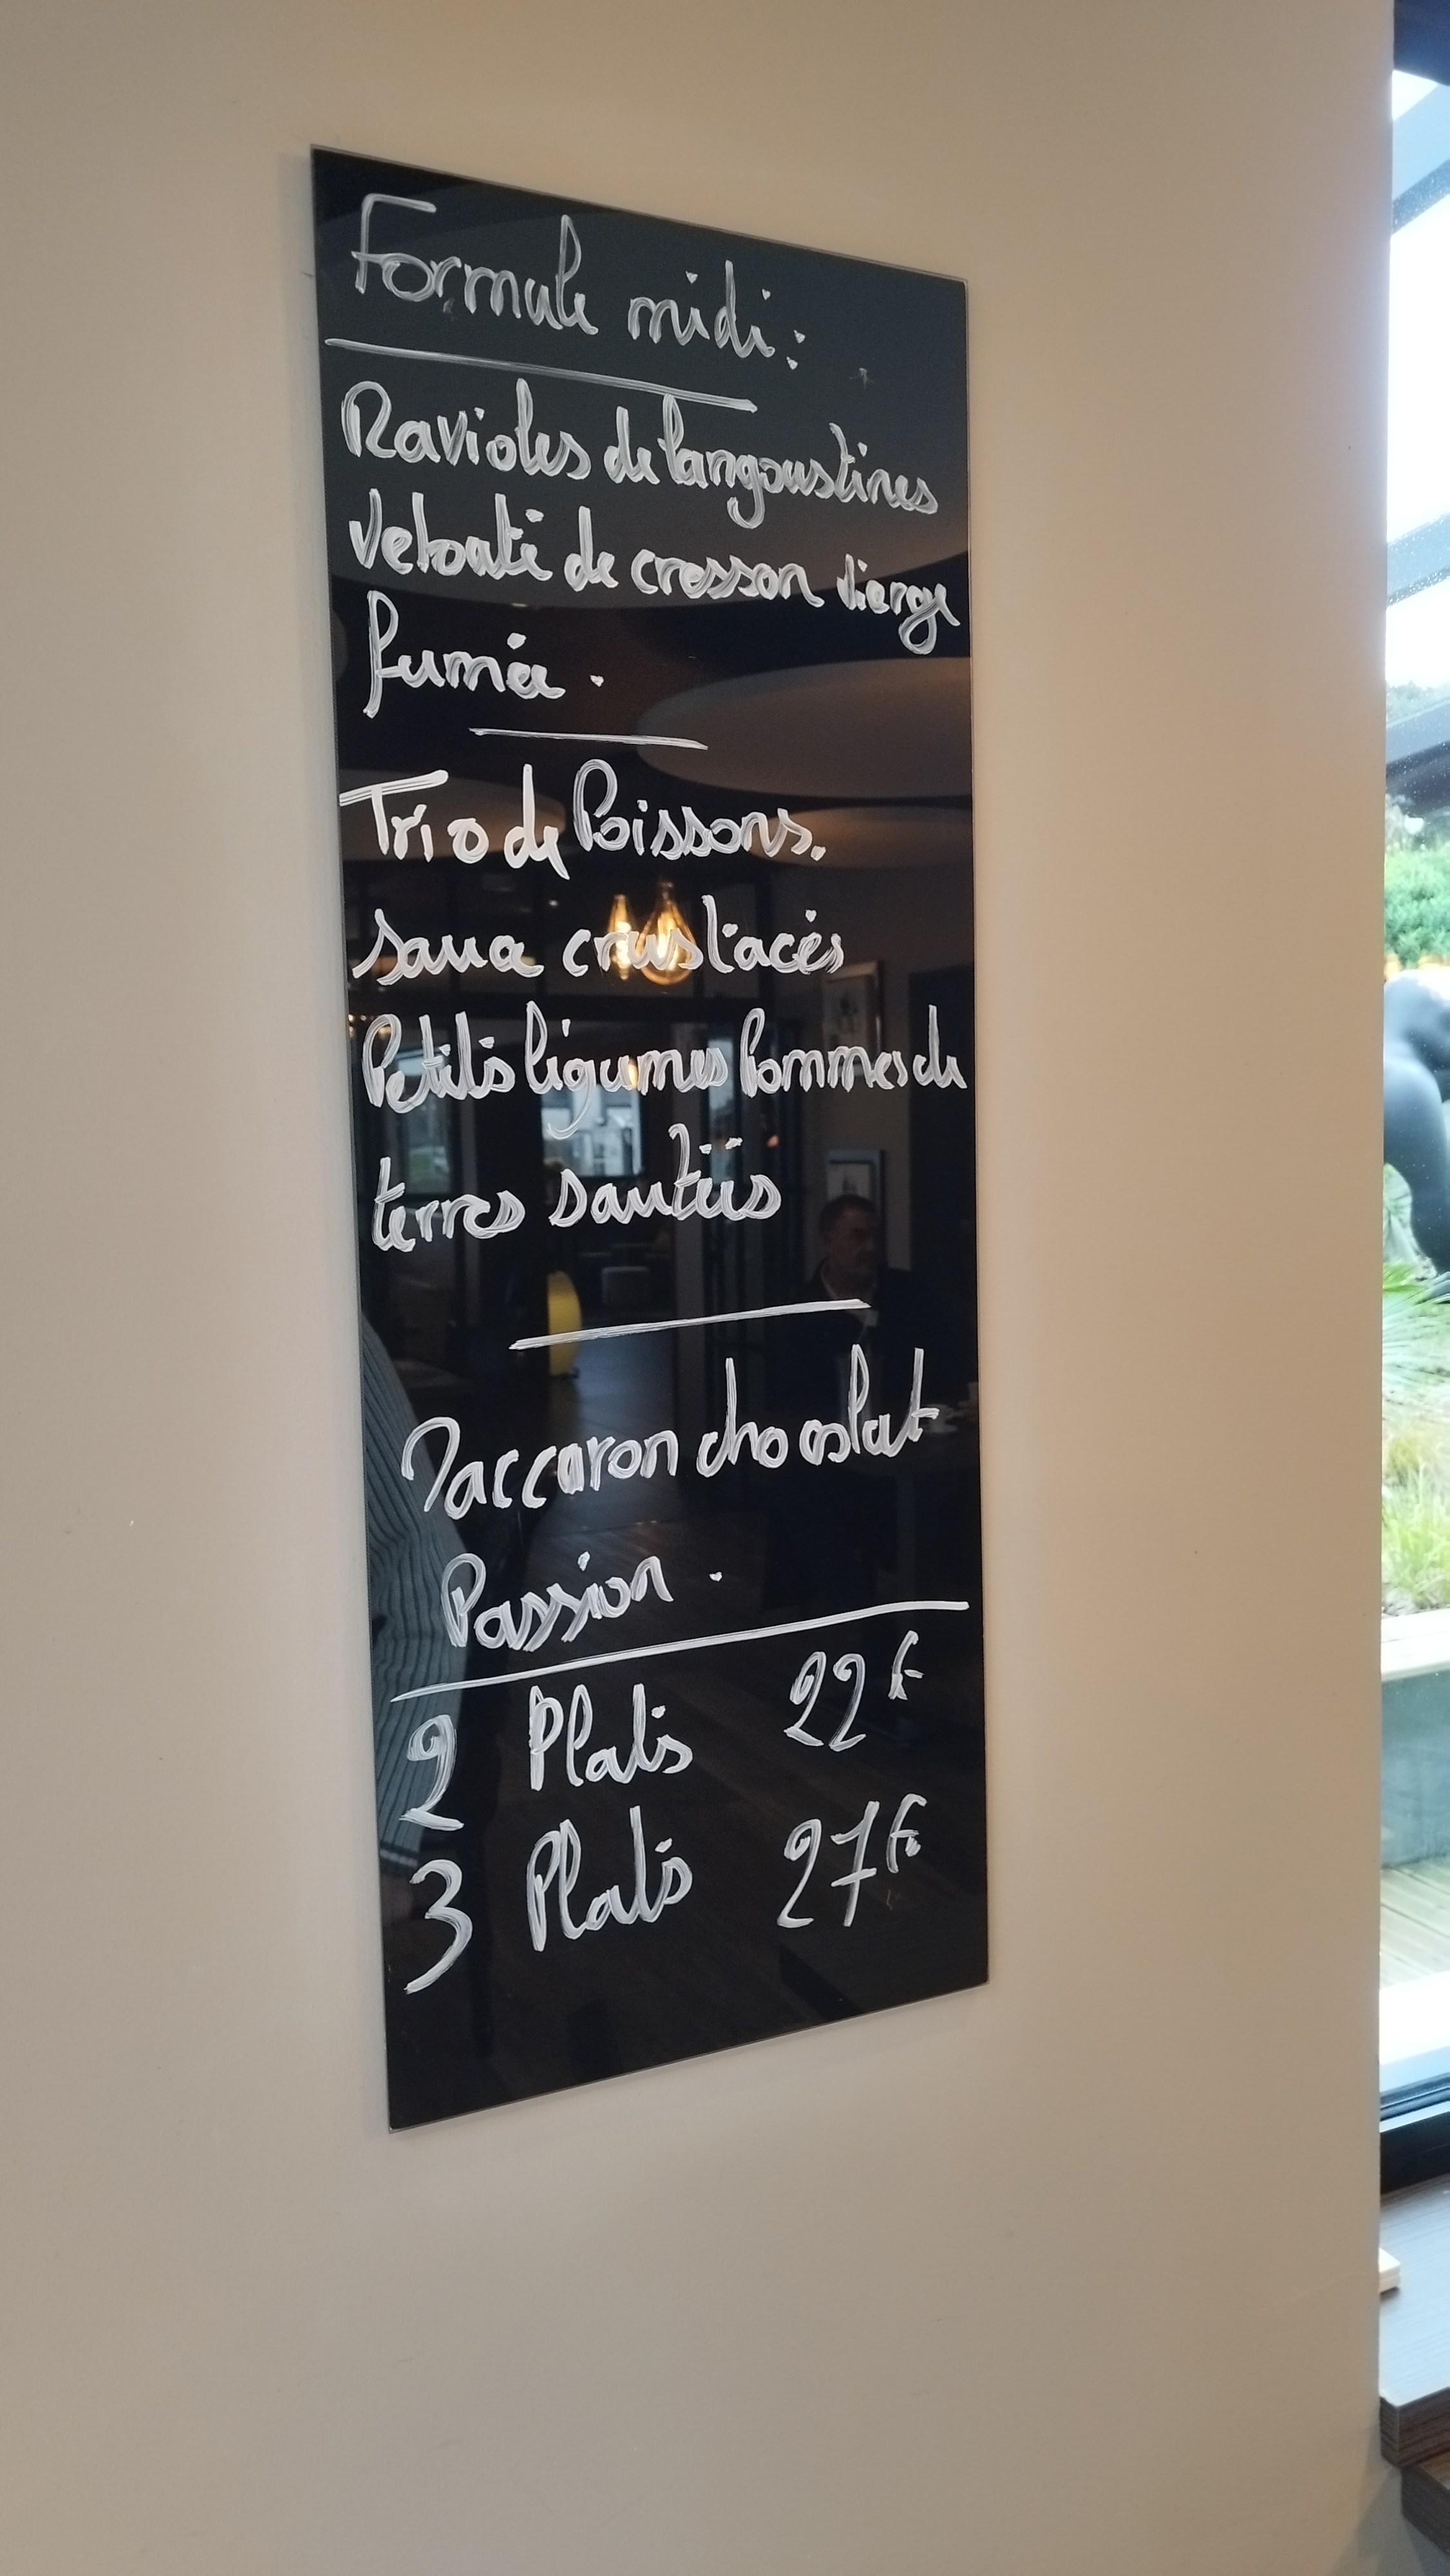 Formule midi :
Ravioles de langoustines
Velouté de cresson vierge
fumée .
Trio de Poissons.
sauce crustacés
Petits légumes Pommes de
terres sautées
Maccaron chocolat
Passion .
2 Plats 22 €
3 Plats 27 €